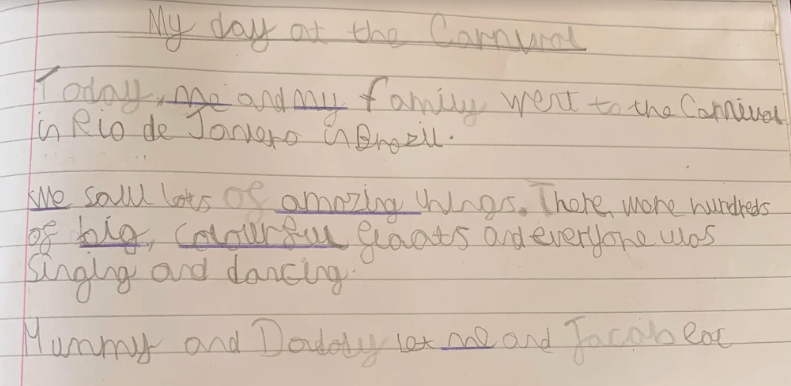 My day at the Carnival
Today, me and my family went to the Carnival
in Rio de Janero in Brazil.
We saw lots of amazing things. There were hundreds
of big, colourful floats and everyone was
Singing and dancing.
Mummy and Daddy let me and Jacob eat